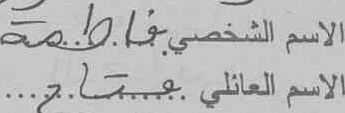 الاسم الشخصي فاطمة
الاسم العائلي